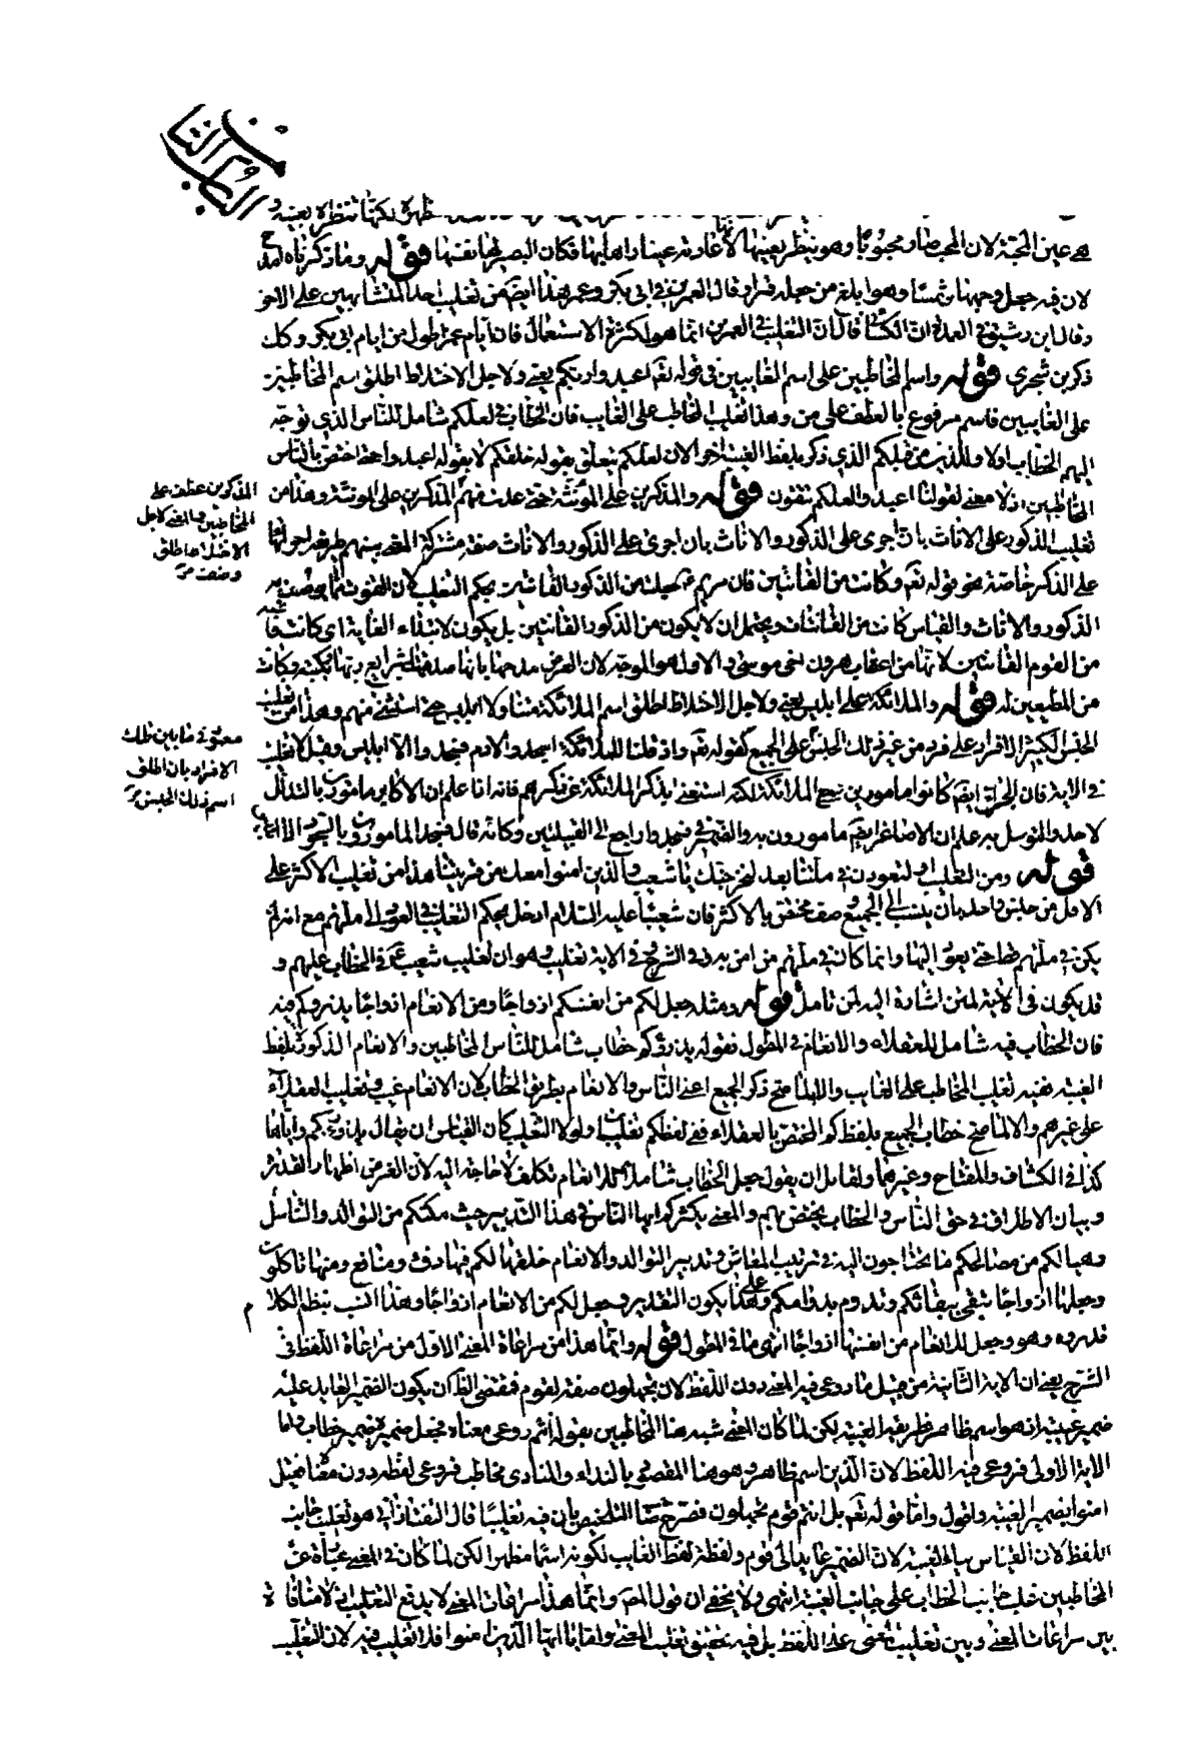 الباب الثامن
ظهره لكنها تنظره بعينه و
هي عين المحبة لان المحب صار محبوبا وهو ينظر بعينها لاعادته عينا راها بها فكان البصير لها نفسها قوله وما ذكرناه امدح
لان فيه جعل وجهها شمسا وهو ابلغ من جعله قمرا وقال العمرين في ابي بكر وعمر هذا ايضا من تغليب احد المتشابهين على الاخر
وقال ابن رشيق في العمدة ان الكسائي قال ان التغليب في العمرين انما هو لكثرة الاستعمال فان ايام عمر اطول من ايام ابي بكر وكك
ذكر بن شجري قوله واسم المخاطبين على اسم الغايبين في قوله تعم اعبدوا ربكم يعني ولاجل الاختلاط اطلق اسم المخاطبين
على الغايبين فاسم مرفوع بالعطف على من وهذا تغليب المخاطب على الغايب فان الخطاب في لعلكم شامل للناس الذي توجه
اليهم الخطاب اولا وللذين من قبلكم الذي ذكر بلفظ الغيبة اخرا لان لعلكم يتعلق بقوله خلقكم لا بقوله اعبدوا حتى اختص بالناس
المخاطبين اذ لا معنى لقولنا اعبدوا لعلكم تتقون قوله والمذكرين على المؤنثة حتى عدت منهم المذكرين على المؤنثة وهذا من
المذكرين عطف على
المخاطبين والمعنى لاجل
الاختلاط اطلق
وصفت مر
تغليب الذكور على الاناث بان اجرى على الذكور والاناث صفة مشتركة المعنى بينهم طريقه اجرائها
على الذكر خاصة نحو قوله تعم وكانت من القانتين فان مريم جعلت من الذكور القانتين بحكم التغليب لان القنوت مما يوصف به
الذكور والاناث والقياس كانت من القانتات ويحتمل ان لا يكون من الذكور القانتين بل يكون لابتداء الغاية اي كانت ناشية
من القوم القانتين لانها من اعقاب هرون اخي موسى والاول هو الموجه لان الغرض مدحها بانها صدقت بشرايع ربها وكتبه وكانت
من المطيعين له قوله والملائكة على ابليس يعني ولاجل الاختلاط اطلق اسم الملائكة متناولا ابليس حتى استثنى منهم وهذا من تغليب
الجنس الكثير الافراد على فرد من غير ذلك الجنس على الجميع كقوله تعم واذ قلنا للملائكة اسجدوا لادم فسجدوا الا ابليس وقيل لا تغليب
معبود فيما بين تلك
الافراد بان اطلق
اسم ذلك الجنس مر
في الاية فان الجن ايضا كانوا مامورين مع الملائكة لكنه استغنى بذكر الملائكة عن ذكرهم فانه اذا علم ان الاكابر مامورون بالتذلل
لاحد والتوسل به علم ان الاصاغر ايضا مامورون به والضمير في فسجدوا راجع الى القبيلتين وكانه قال فسجد المامورون بالسجود الا ابليس
قوله ومن التغليب او لتعودن في ملتنا بعد لنخرجنك يا شعيب والذين امنوا معك من قريتنا هذا من تغليب الاكثر على
الاقل من جنس واحد بان ينسب الى الجميع وصف مختص بالاكثر فان شعيبا عليه السلام ادخل بحكم التغليب في العود الى ملتهم مع انه لم
يكن في ملتهم قط حتى يعود اليها وانما كان في ملتهم من امن به وفي الشرح في الاية تغليب وهو ان تغليب شعيب ع في الخطاب عليهم و
قد يكون في الاية لمن اشارة اليه لمن تامل قوله ومثله جعل لكم من انفسكم ازواجا ومن الانعام ازواجا يذرؤكم فيه
فان الخطاب فيه شامل للعقلاء والانعام في المطول فقوله يذرؤكم خطاب شامل للناس المخاطبين والانعام المذكورة بلفظ
الغيبة ففيه تغليب المخاطب على الغايب والا لما صح ذكر الجميع اعني الناس والانعام بطريق الخطاب لان الانعام غيب وتغليب العقلاء
على غيرهم والا لما صح خطاب الجميع بلفظ كم المختص بالعقلاء ففي لفظ كم تغليبان ولولا التغليب لكان القياس ان يقال يذرؤكم واياها
كذا في الكشاف والمفتاح وغيرهما ولقايل ان يقول جعل الخطاب شاملا للانعام تكلف لا حاجة اليه لان الغرض اظهار القدرة
وبيان الالطاف في حق الناس والخطاب يختص بهم والمعنى يكثركم ايها الناس في هذا التدبير حيث مكنكم من التوالد والتناسل
وهيا لكم من مصالحكم ما تحتاجون اليه في ترتيب المعاش وتدبير التوالد والانعام خلقها لكم فيها دفء ومنافع ومنها تاكلون
وجعلها ازواجا تبقى ببقائكم وتدوم بدوامكم وعلى هذا يكون التقدير وجعل لكم من الانعام ازواجا وهذا انسب بنظم الكلام
قدروه وهو وجعل للانعام من انفسها ازواجا انتهى ما في المطول قوله وانما هذا من مراعاة المعنى الاول من مراعاة اللفظ في
الشرح يعني ان الاية الثانية من قبيل ما روعي فيه المعنى دون اللفظ لان تجهلون صفة لقوم فمقتضى الظ ان يكون الضمير العايد عليه
ضمير غيبة اذ هو اسم ظاهر طريقه الغيبة لكن لما كان المعنى شبه هنا المخاطبين بقوله انتم روعي معناه فجعل ضميره ضمير خطاب واما
الاية الاولى فروعي فيه اللفظ لان الذين اسم ظاهر وهو هنا المقصود بالنداء والمنادى مخاطب فروعي لفظه دون معناه فقيل
امنوا بضمير الغيبة واقول واما قوله تعم بل انتم قوم تجهلون فصرح صا التلخيص بان فيه تغليبا قال التفتازاني هو تغليب جانب
اللفظ لان القياس بياء الغيبة لان الضمير عايد الى قوم ولفظه لفظ الغايب لكونه اسما مظهرا لكن لما كان في المعنى عبارة عن
المخاطبين غلب جانب الخطاب على جانب الغيبة انتهى ولا يخفى ان قول المصر وانما هذا مراعات المعنى لا يدفع التغليب اذ لا منافاة
بين مراعات المعنى وبين تغليب المعنى على اللفظ بل فيه تحقيق تغليب المعنى واما يا ايها الذين امنوا فلا تغليب فيه لان التغليب